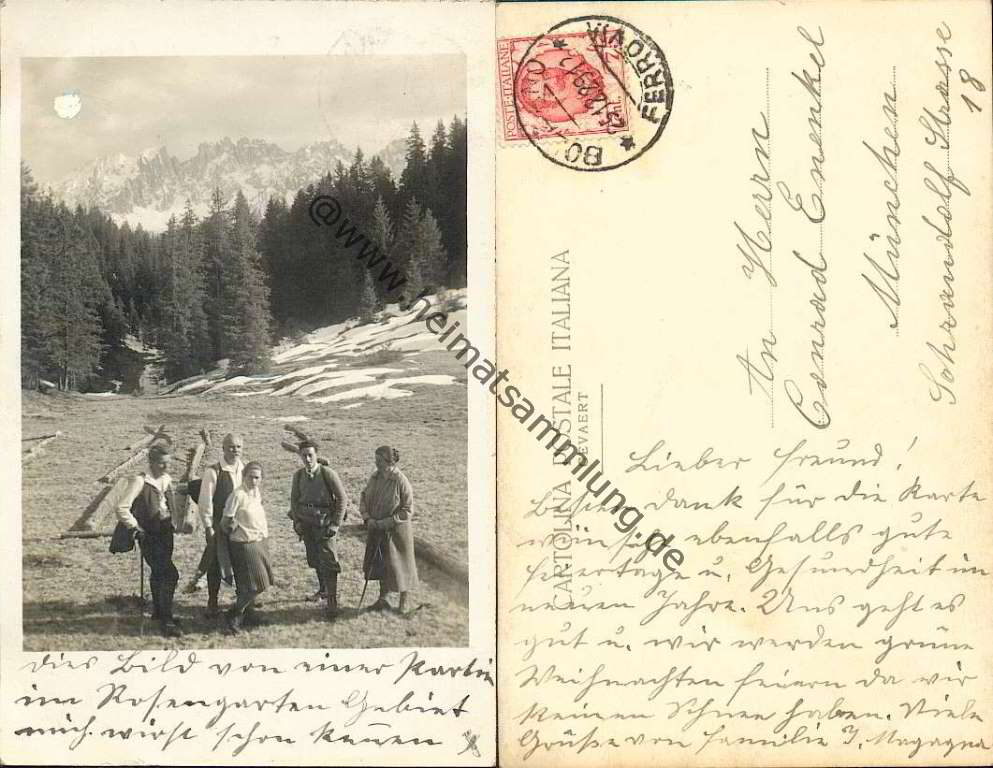 dies Bild von einer Partie
im Rosengarten Gebiet
mich wirst schon kennen
POSTE·ITALIANE
BOLZANO
FERROVIA
23.12.29.12
CARTOLINA POSTALE ITALIANA
GEVAERT
An Herrn
Conrad Enenkel
München
Schraudolf Strasse
18
Lieber Freund!
Besten dank für die Karte
wünsche ebenfalls gute
feiertage u. Gesundheit im
neuen Jahre. Uns geht es
gut u. wir werden grüne
Weihnachten feiern da wir
keinen Schnee haben. Viele
Grüße von familie J. Magagna
@www.heimatsammlung.de